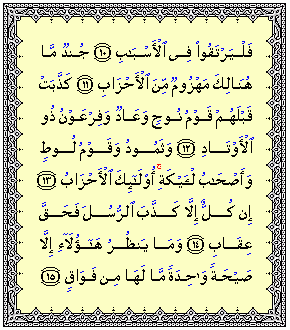 فَلْيَرْتَقُوا۟ فِى ٱلْأَسْبَٰبِ ١٠ جُندٌ مَّا
هُنَالِكَ مَهْزُومٌ مِّنَ ٱلْأَحْزَابِ ١١ كَذَّبَتْ
قَبْلَهُمْ قَوْمُ نُوحٍ وَعَادٌ وَفِرْعَوْنُ ذُو
ٱلْأَوْتَادِ ١٢ وَثَمُودُ وَقَوْمُ لُوطٍ
وَأَصْحَٰبُ لْـَٔيْكَةِ ۚ أُو۟لَٰٓئِكَ ٱلْأَحْزَابُ ١٣
إِن كُلٌّ إِلَّا كَذَّبَ ٱلرُّسُلَ فَحَقَّ
عِقَابِ ١٤ وَمَا يَنظُرُ هَٰٓؤُلَآءِ إِلَّا
صَيْحَةً وَٰحِدَةً مَّا لَهَا مِن فَوَاقٍ ١٥